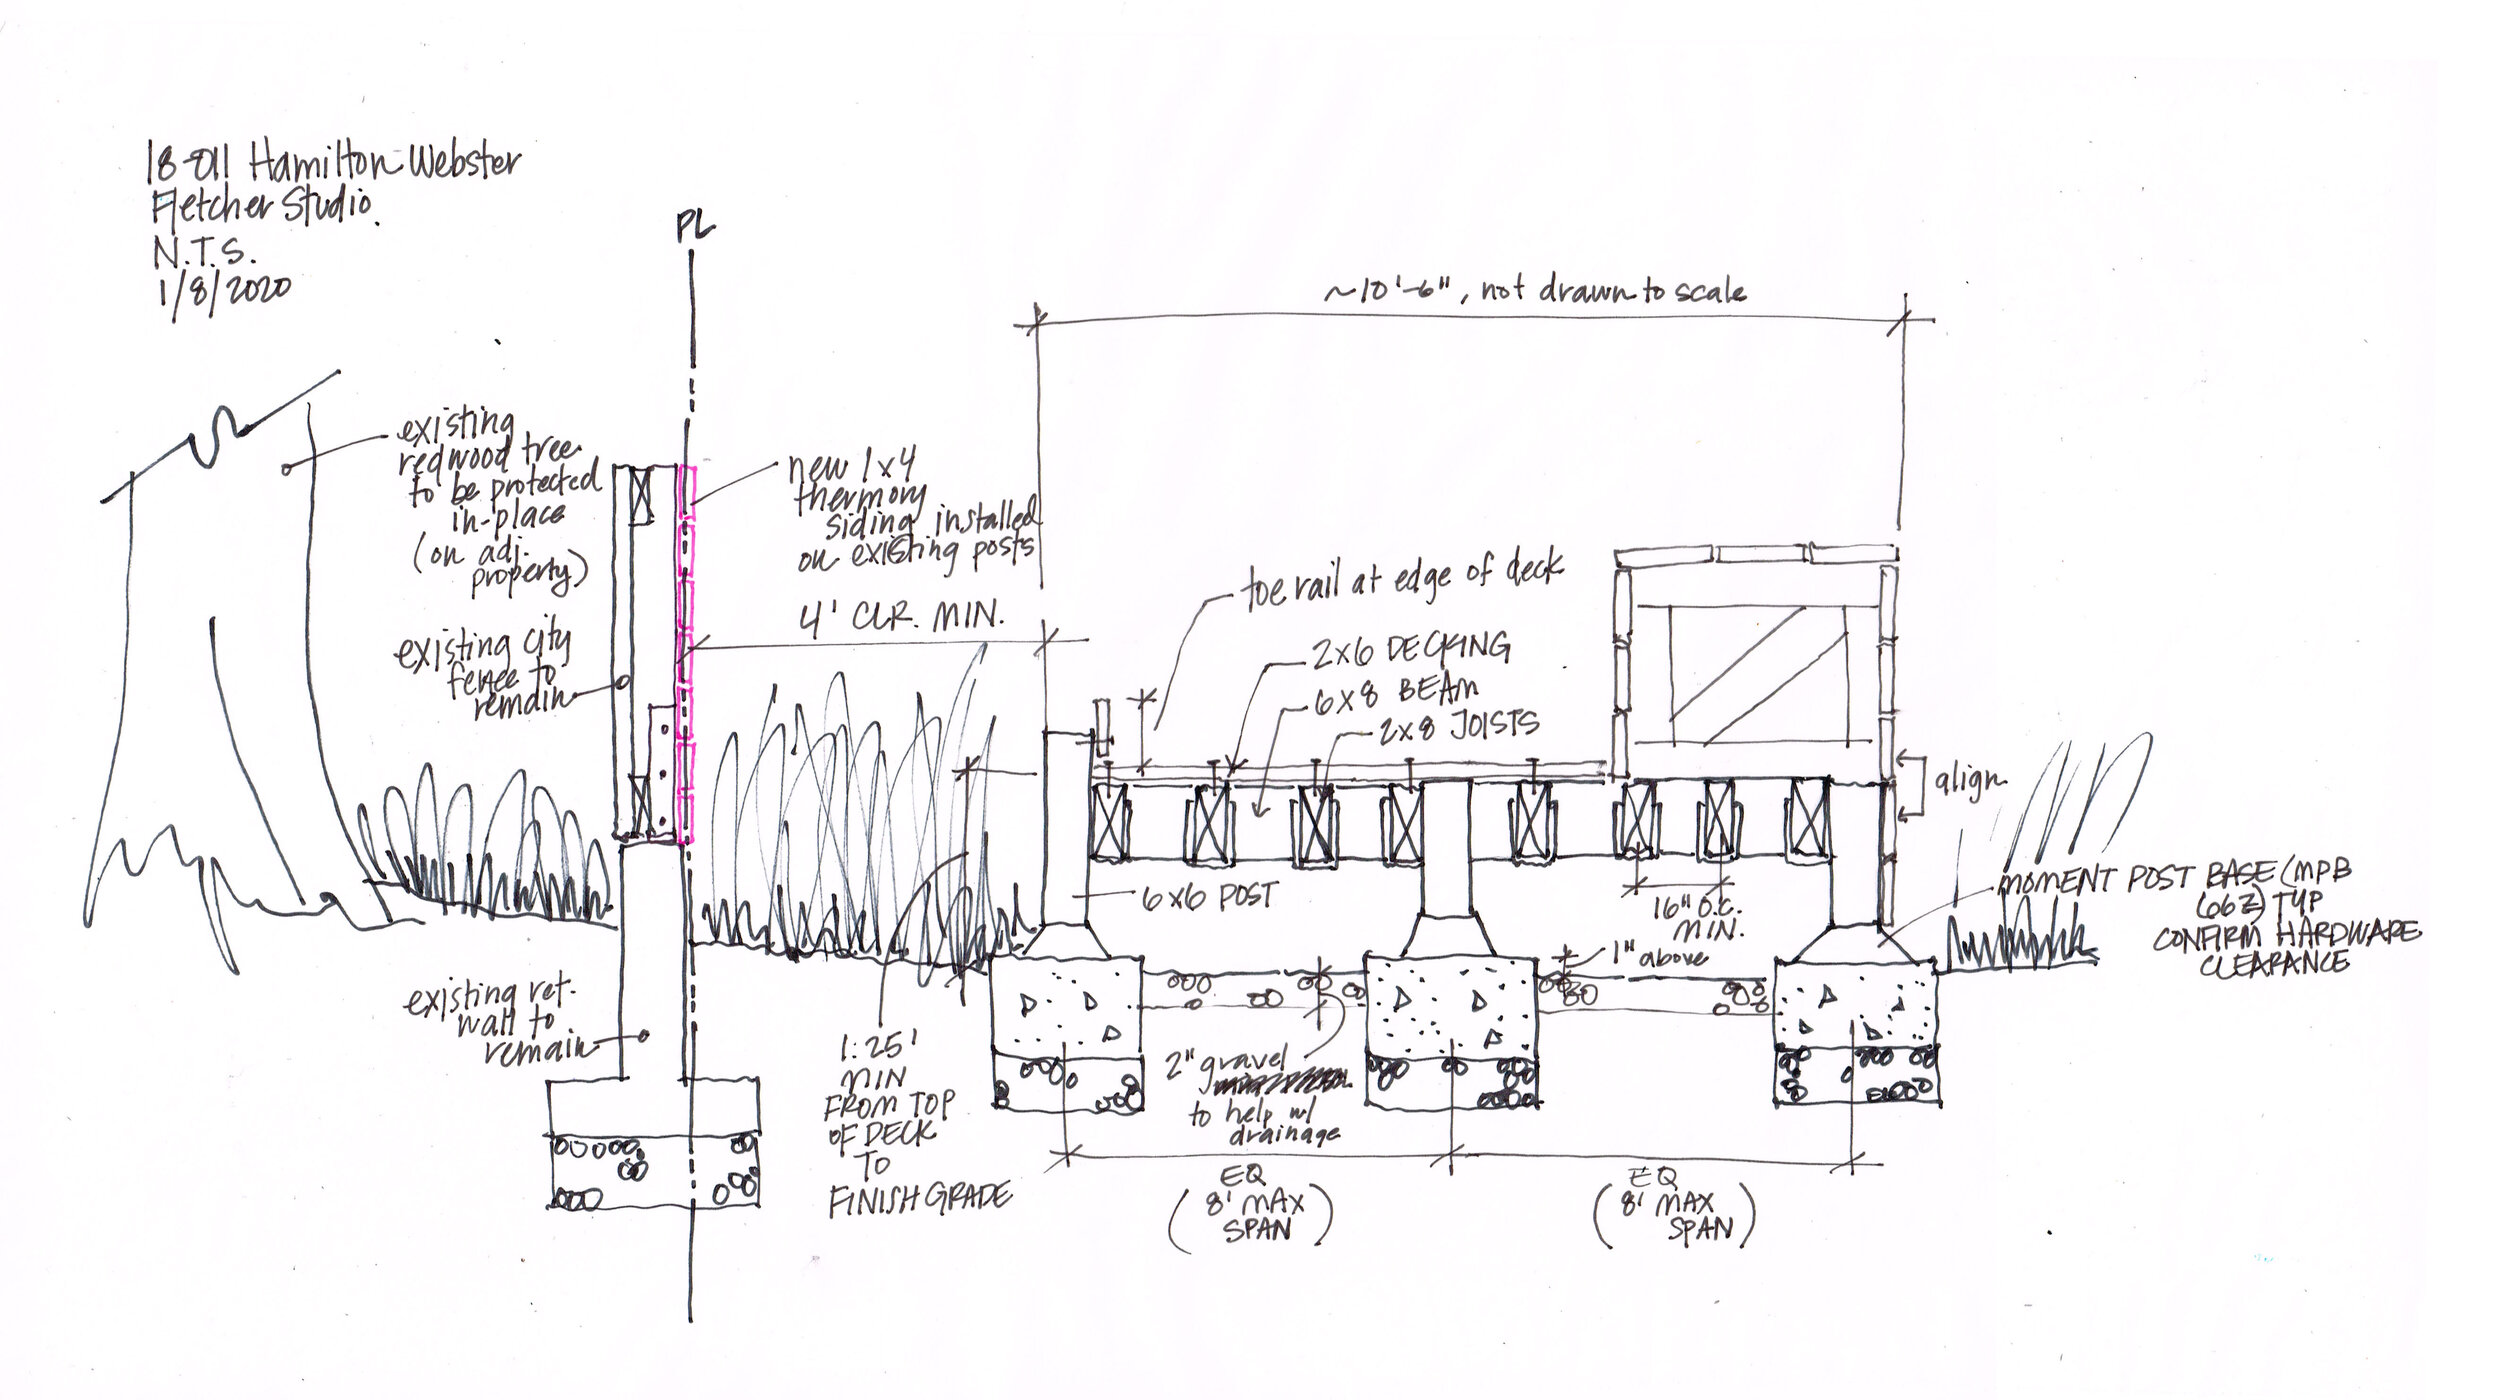 18-011 Hamilton-Webster
Fletcher Studio
N.T.S.
1/8/2020
PL
~10'-6", not drawn to scale
existing
redwood tree
to be protected
in-place
(on adj.
property)
new 1x4
thermory
siding installed
on existing posts
4' CLR. MIN.
toe rail at edge of deck
existing city
fence to
remain
2x6 DECKING
6x8 BEAM
2x8 JOISTS
align
6x6 POST
16" O.C.
MIN.
1" above
MOMENT POST BASE (MPB
66Z) TYP
CONFIRM HARDWARE
CLEARANCE
existing ret.
wall to
remain
1:25'
MIN
FROM TOP
OF DECK
TO
FINISH GRADE
2" gravel
to help w/
drainage
EQ
(8' MAX
SPAN)
EQ
(8' MAX
SPAN)